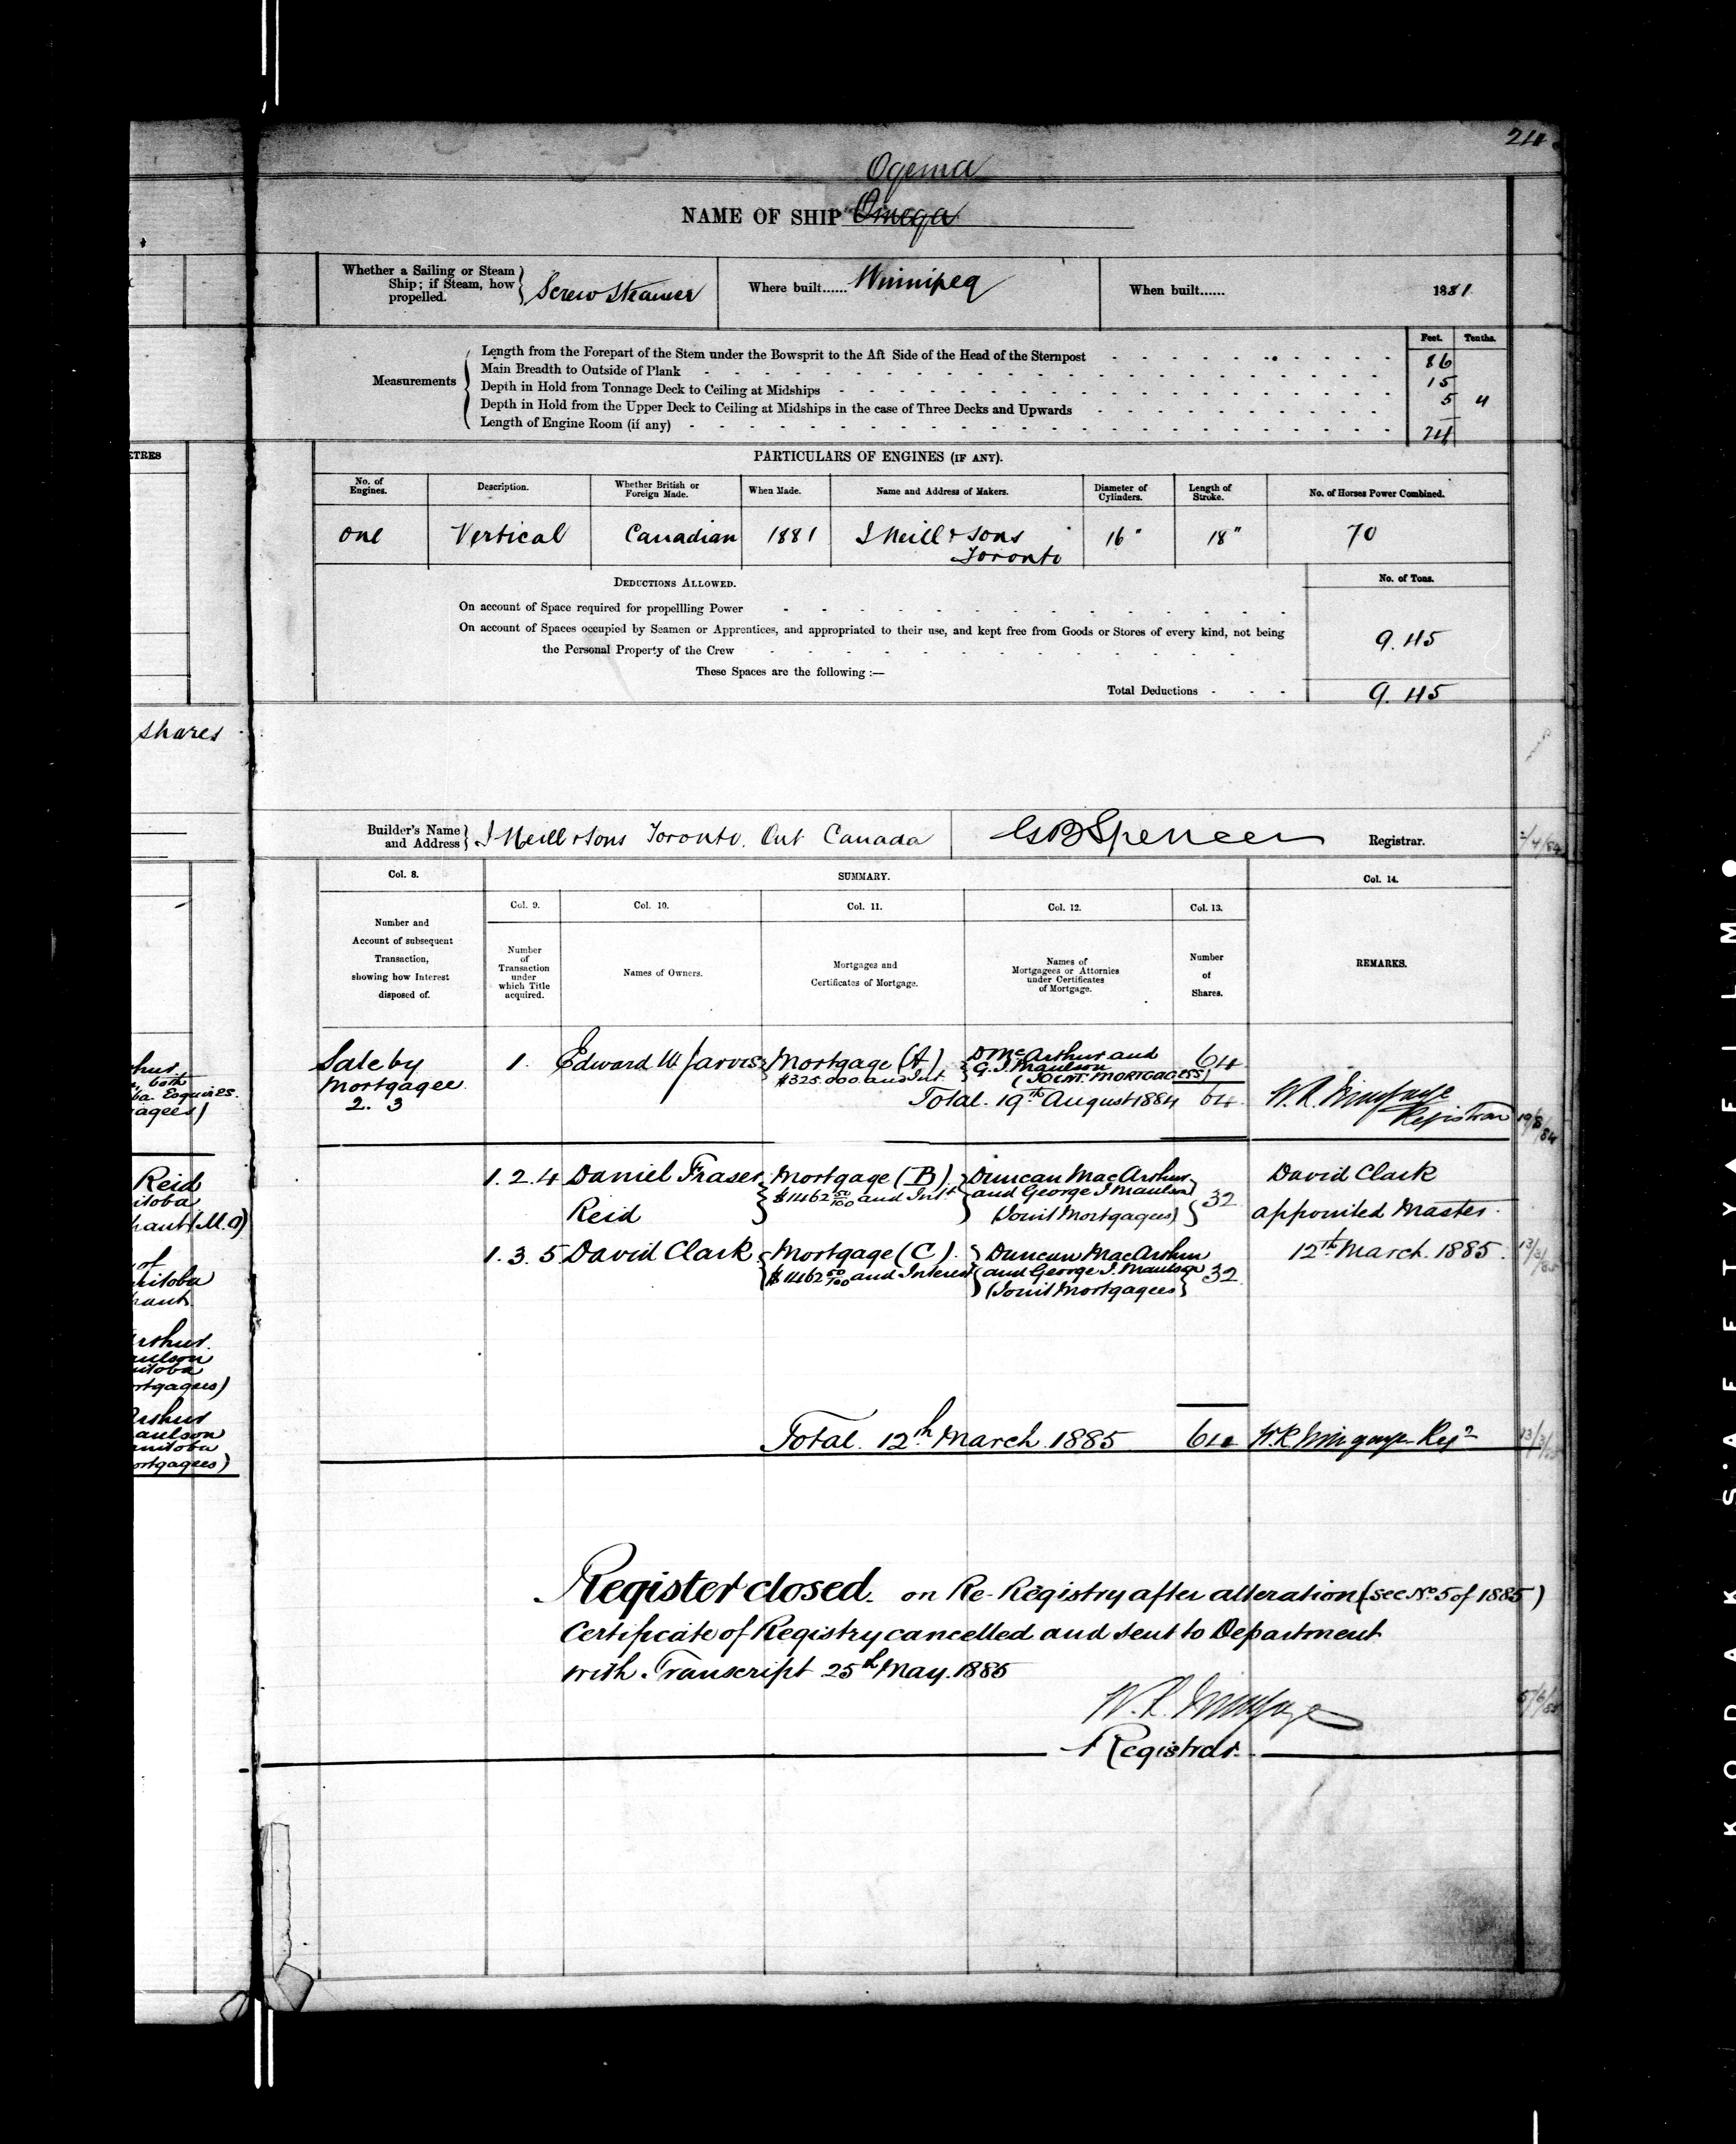 24
Ogema
NAME OF SHIP Omega
Whether a Sailing or Steam Ship; if Steam, how propelled. Screw Steamer
Where built...... Winnipeg
When built...... 1881
Feet. Tenths.
Measurements
Length from the Forepart of the Stem under the Bowsprit to the Aft Side of the Head of the Sternpost 86
Main Breadth to Outside of Plank 15
Depth in Hold from Tonnage Deck to Ceiling at Midships 5 4
Depth in Hold from the Upper Deck to Ceiling at Midships in the case of Three Decks and Upwards
Length of Engine Room (if any) 24
ETRES
PARTICULARS OF ENGINES (IF ANY).
No. of Engines. Description. Whether British or Foreign Made. When Made. Name and Address of Makers. Diameter of Cylinders. Length of Stroke. No. of Horses Power Combined.
One Vertical Canadian 1881 J Neill & Sons 16" 18" 70
Toronto
DEDUCTIONS ALLOWED. No. of Tons.
On account of Space required for propellling Power
On account of Spaces occupied by Seamen or Apprentices, and appropriated to their use, and kept free from Goods or Stores of every kind, not being
the Personal Property of the Crew 9.45
These Spaces are the following :—
Total Deductions 9.45
shares
Builder's Name and Address J Neill & Sons Toronto. Ont Canada
GB Spencer Registrar.
Col. 8. SUMMARY. Col. 14.
Col. 9. Col. 10. Col. 11. Col. 12. Col. 13.
Number and Account of subsequent Transaction, showing how Interest disposed of.
Number of Transaction under which Title acquired.
Names of Owners.
Mortgages and Certificates of Mortgage.
Names of Mortgagees or Attornies under Certificates of Mortgage.
Number of Shares.
REMARKS.
Sale by Mortgagee. 2. 3
1. Edward W Jarvis Mortgage (A) D McArthur and 64
$325.000 and Int. G. J. Maulson
(JOINT MORTGAGEES)
Total. 19th August 1884 64
Registrar 19/8/84
1. 2. 4 Daniel Fraser Mortgage (B) Duncan MacArthur David Clark
$1462 50/100 and Intt and George J Maulson 32
Reid (Joint Mortgagees) appointed Master.
1. 3. 5 David Clark Mortgage (C). Duncan MacArthur 12th March. 1885. 13/3/85
$1462 50/100 and Interest and George J. Maulson 32
(Joint Mortgagees)
Total. 12th March 1885 64
Register closed. on Re-Registry after alteration (see No. 5 of 1885)
Certificate of Registry cancelled and sent to Department
with Transcript 25th May. 1885
Registrar.
Reid
itoba
KODAK S'AFETY FILM